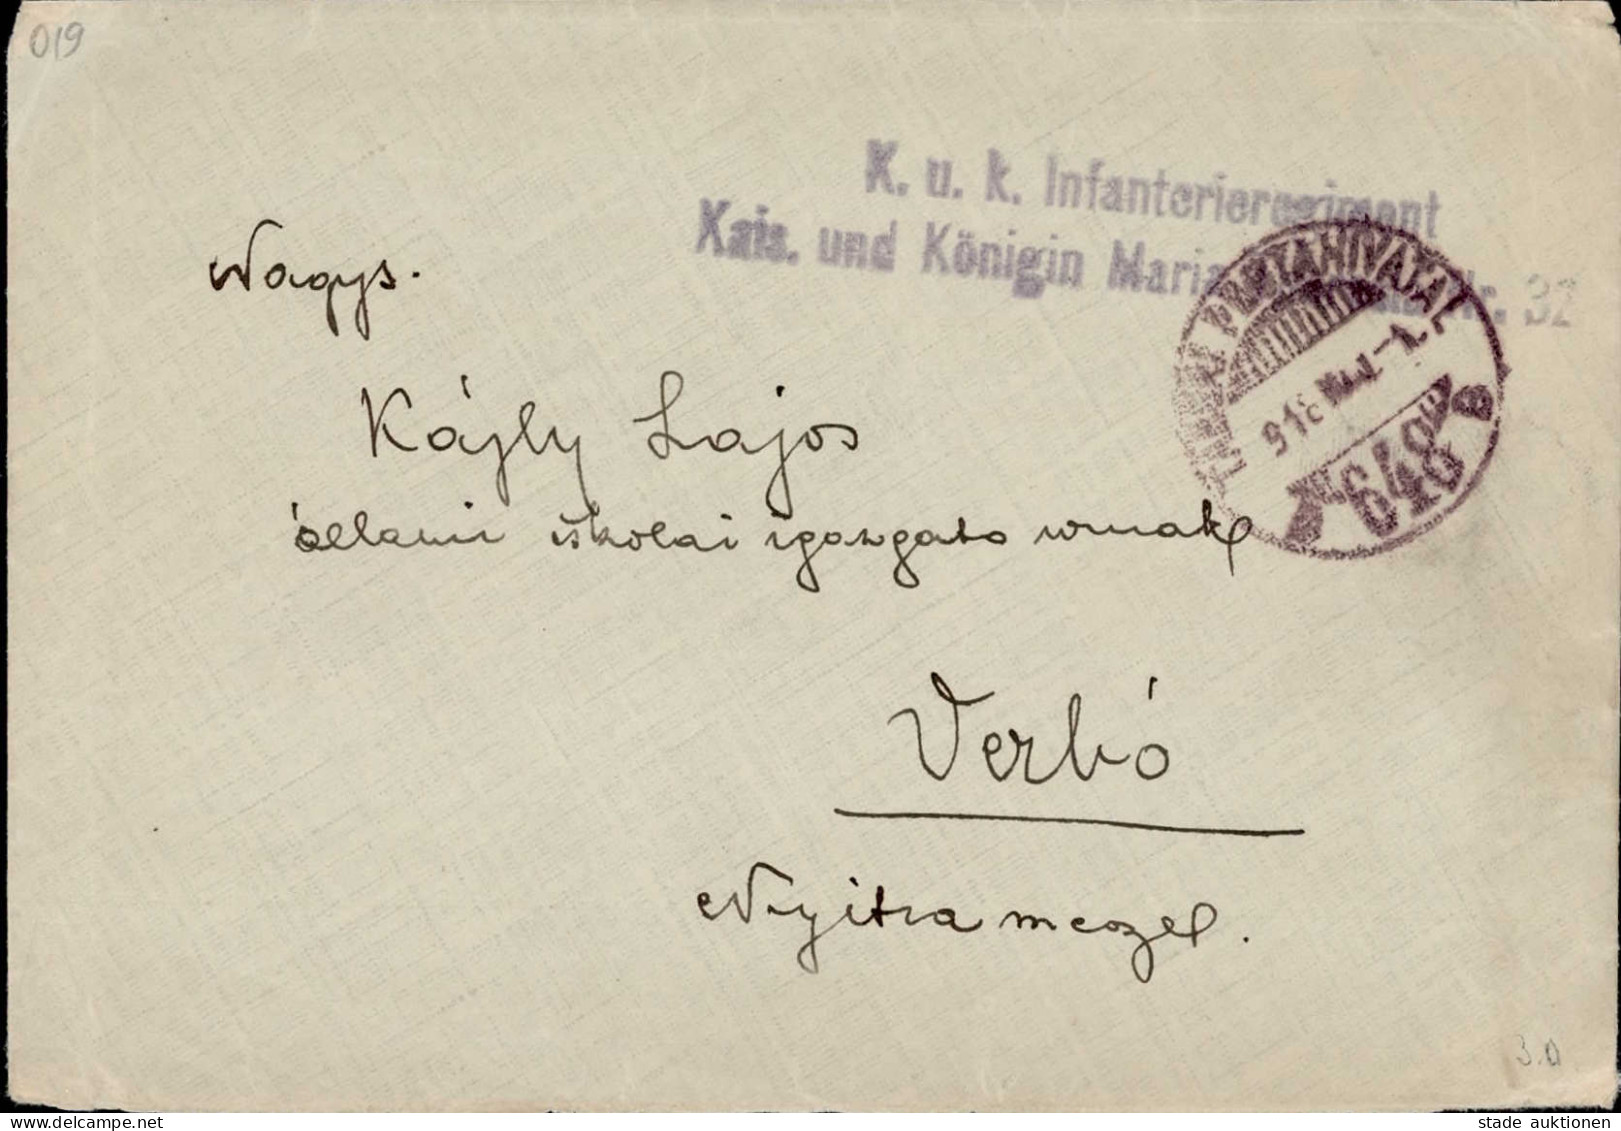 019
K. u. k. Infanterieregiment
Kais. und Königin Maria Nr. 32
TÁBORI POSTAHIVATAL
918 MÁJ. -1.
648
B
Nagys.
Kájly Lajos
állami iskolai igazgató urnak
Verbó
Nyitra megye.
3.0
delcampe.net
stade auktionen